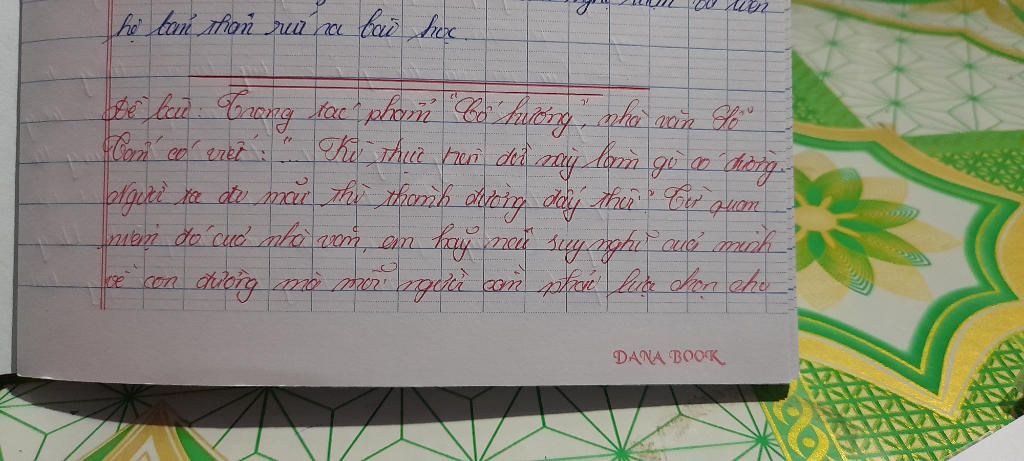 hệ bản thân rút ra bài học.
Đề bài: Trong tác phẩm "Cố hương", nhà văn Lỗ
Tấn có viết: "... Kì thực trên đời này làm gì có đường.
Người ta đi mãi thì thành đường đấy thôi." Từ quan
niệm đó của nhà văn, em hãy nêu suy nghĩ của mình
về con đường mà mỗi người cần phải lựa chọn cho
DANA BOOK